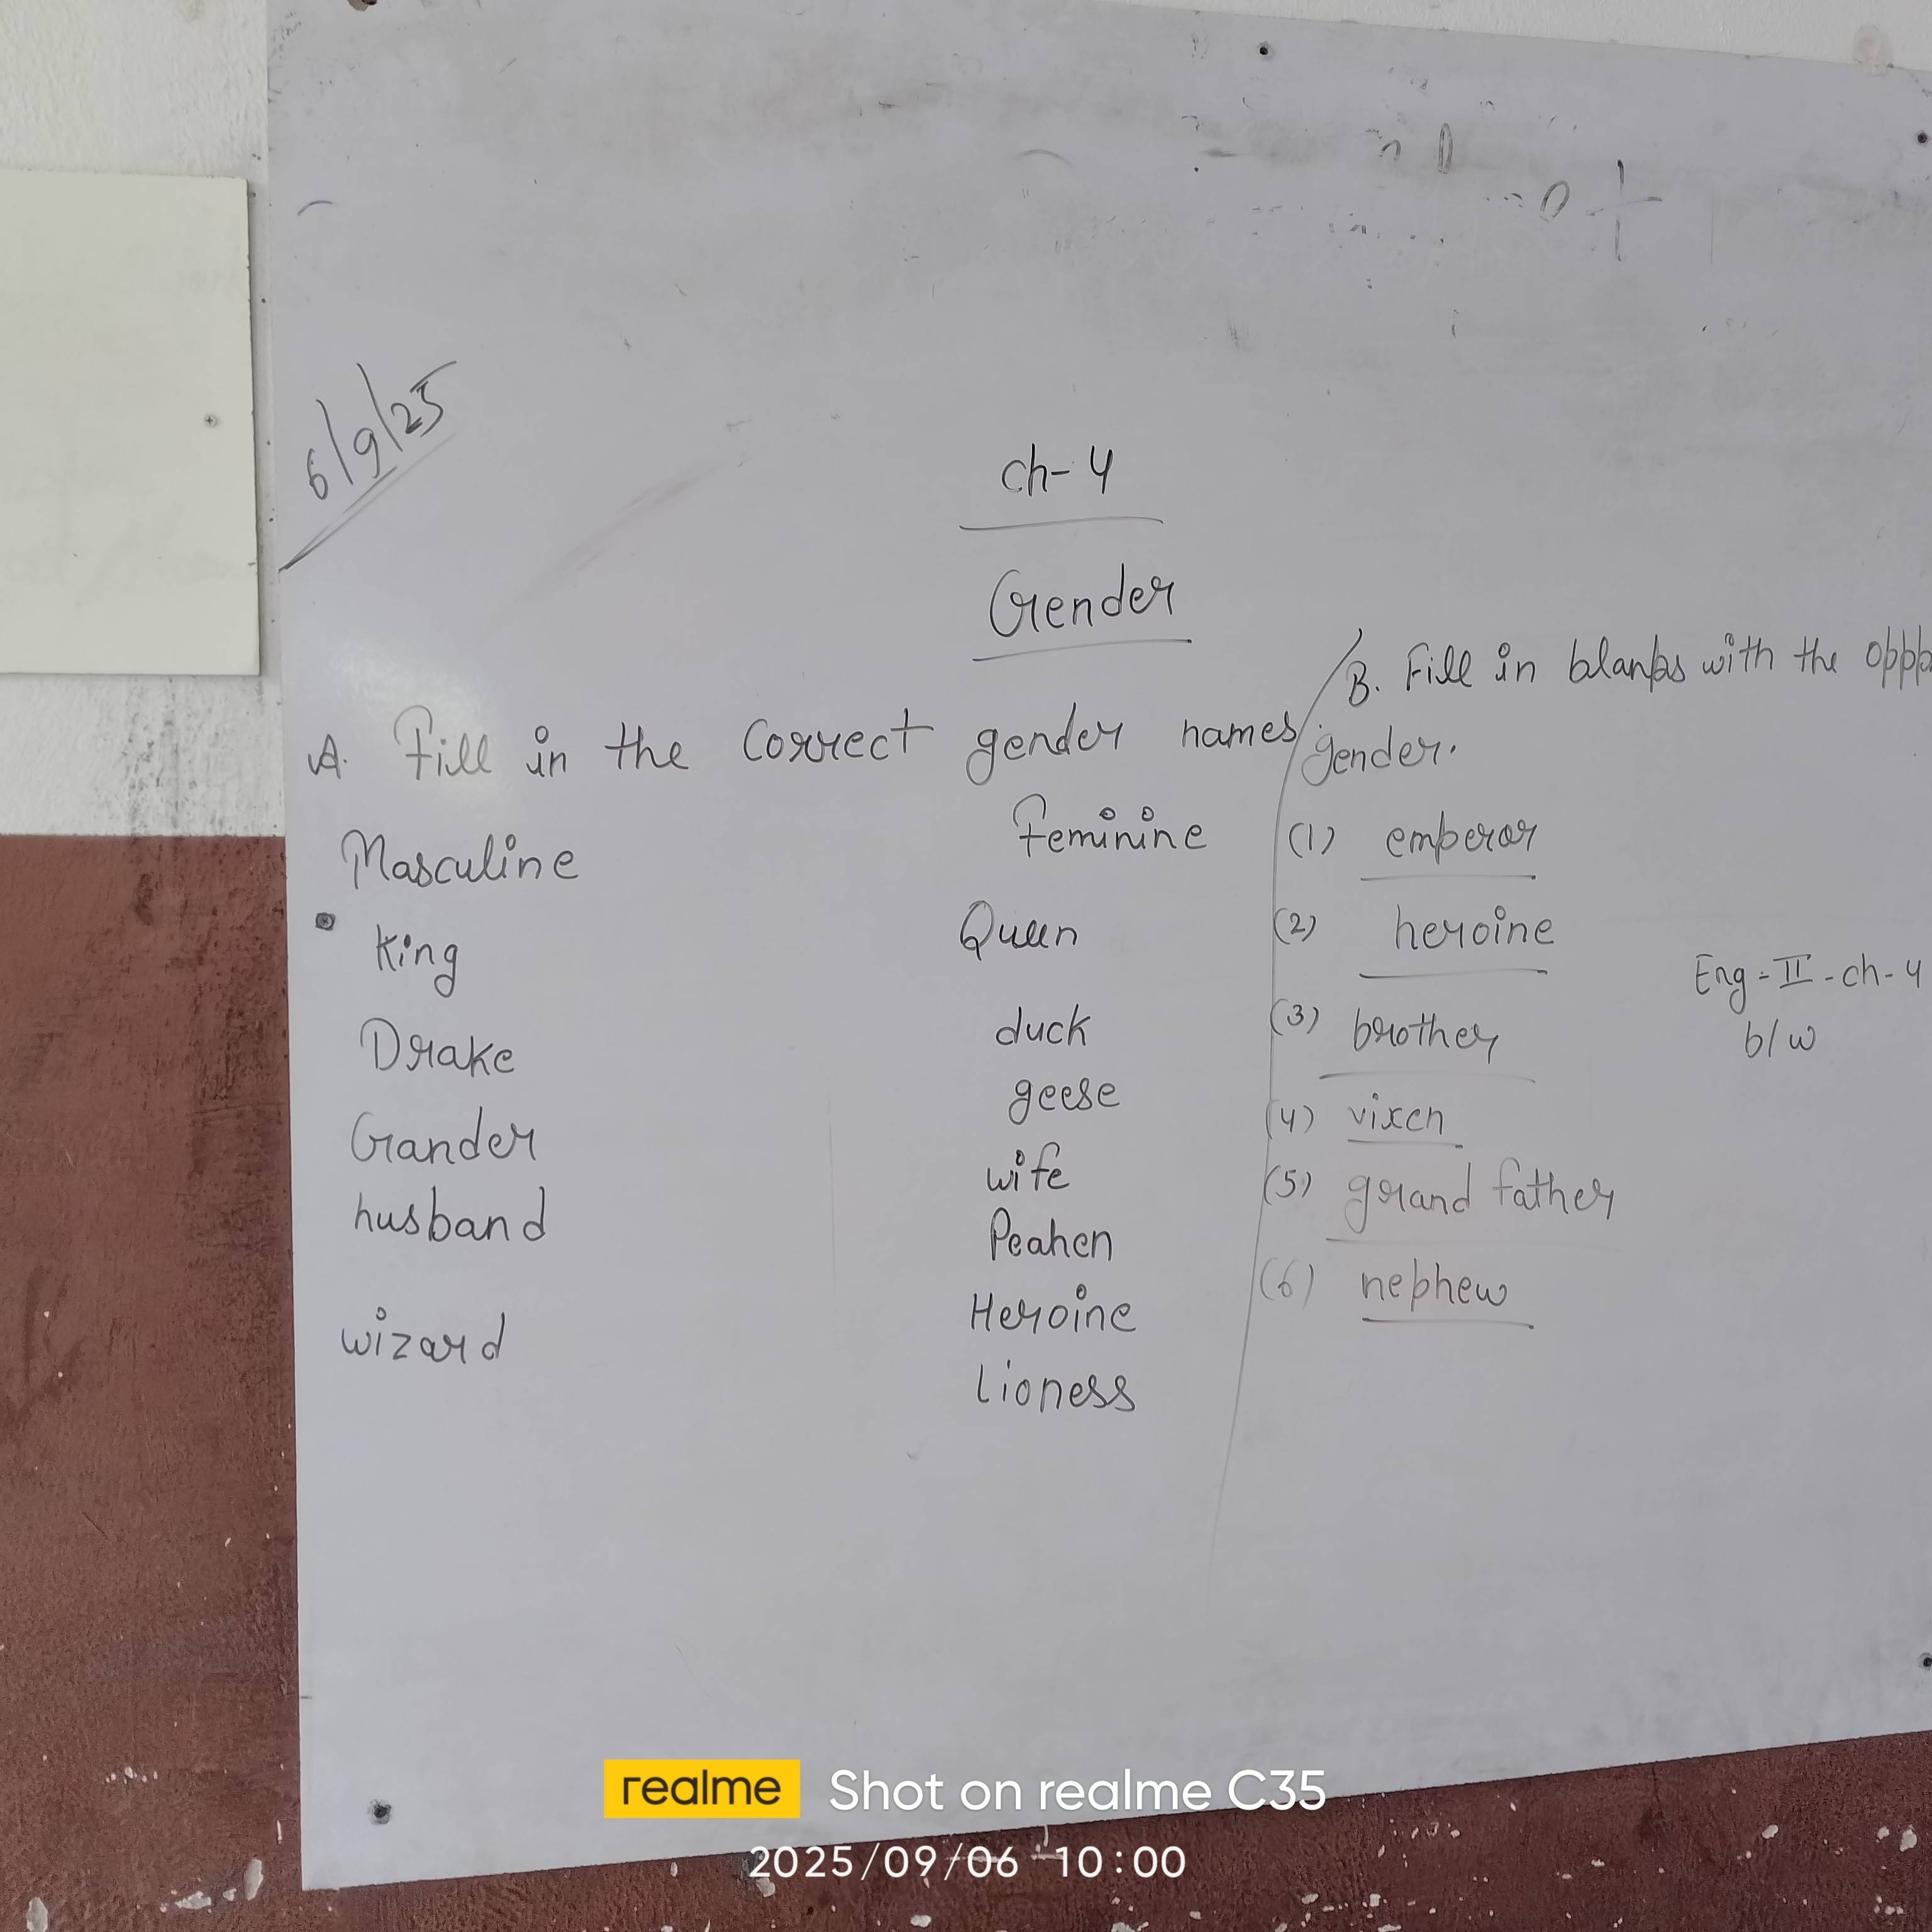 6/9/25
ch-4
Gender
A. Fill in the Correct gender names.
Masculine Feminine
King Queen
Drake duck
Gander geese
husband wife
Peahen
Heroine
wizard
Lioness
B. Fill in blanks with the
gender.
(1) emperor
(2) heroine
(3) brother
(4) vixen
(5) grand father
(6) nephew
Eng-II-ch-4
b/w
realme Shot on realme C35
2025/09/06 10:00